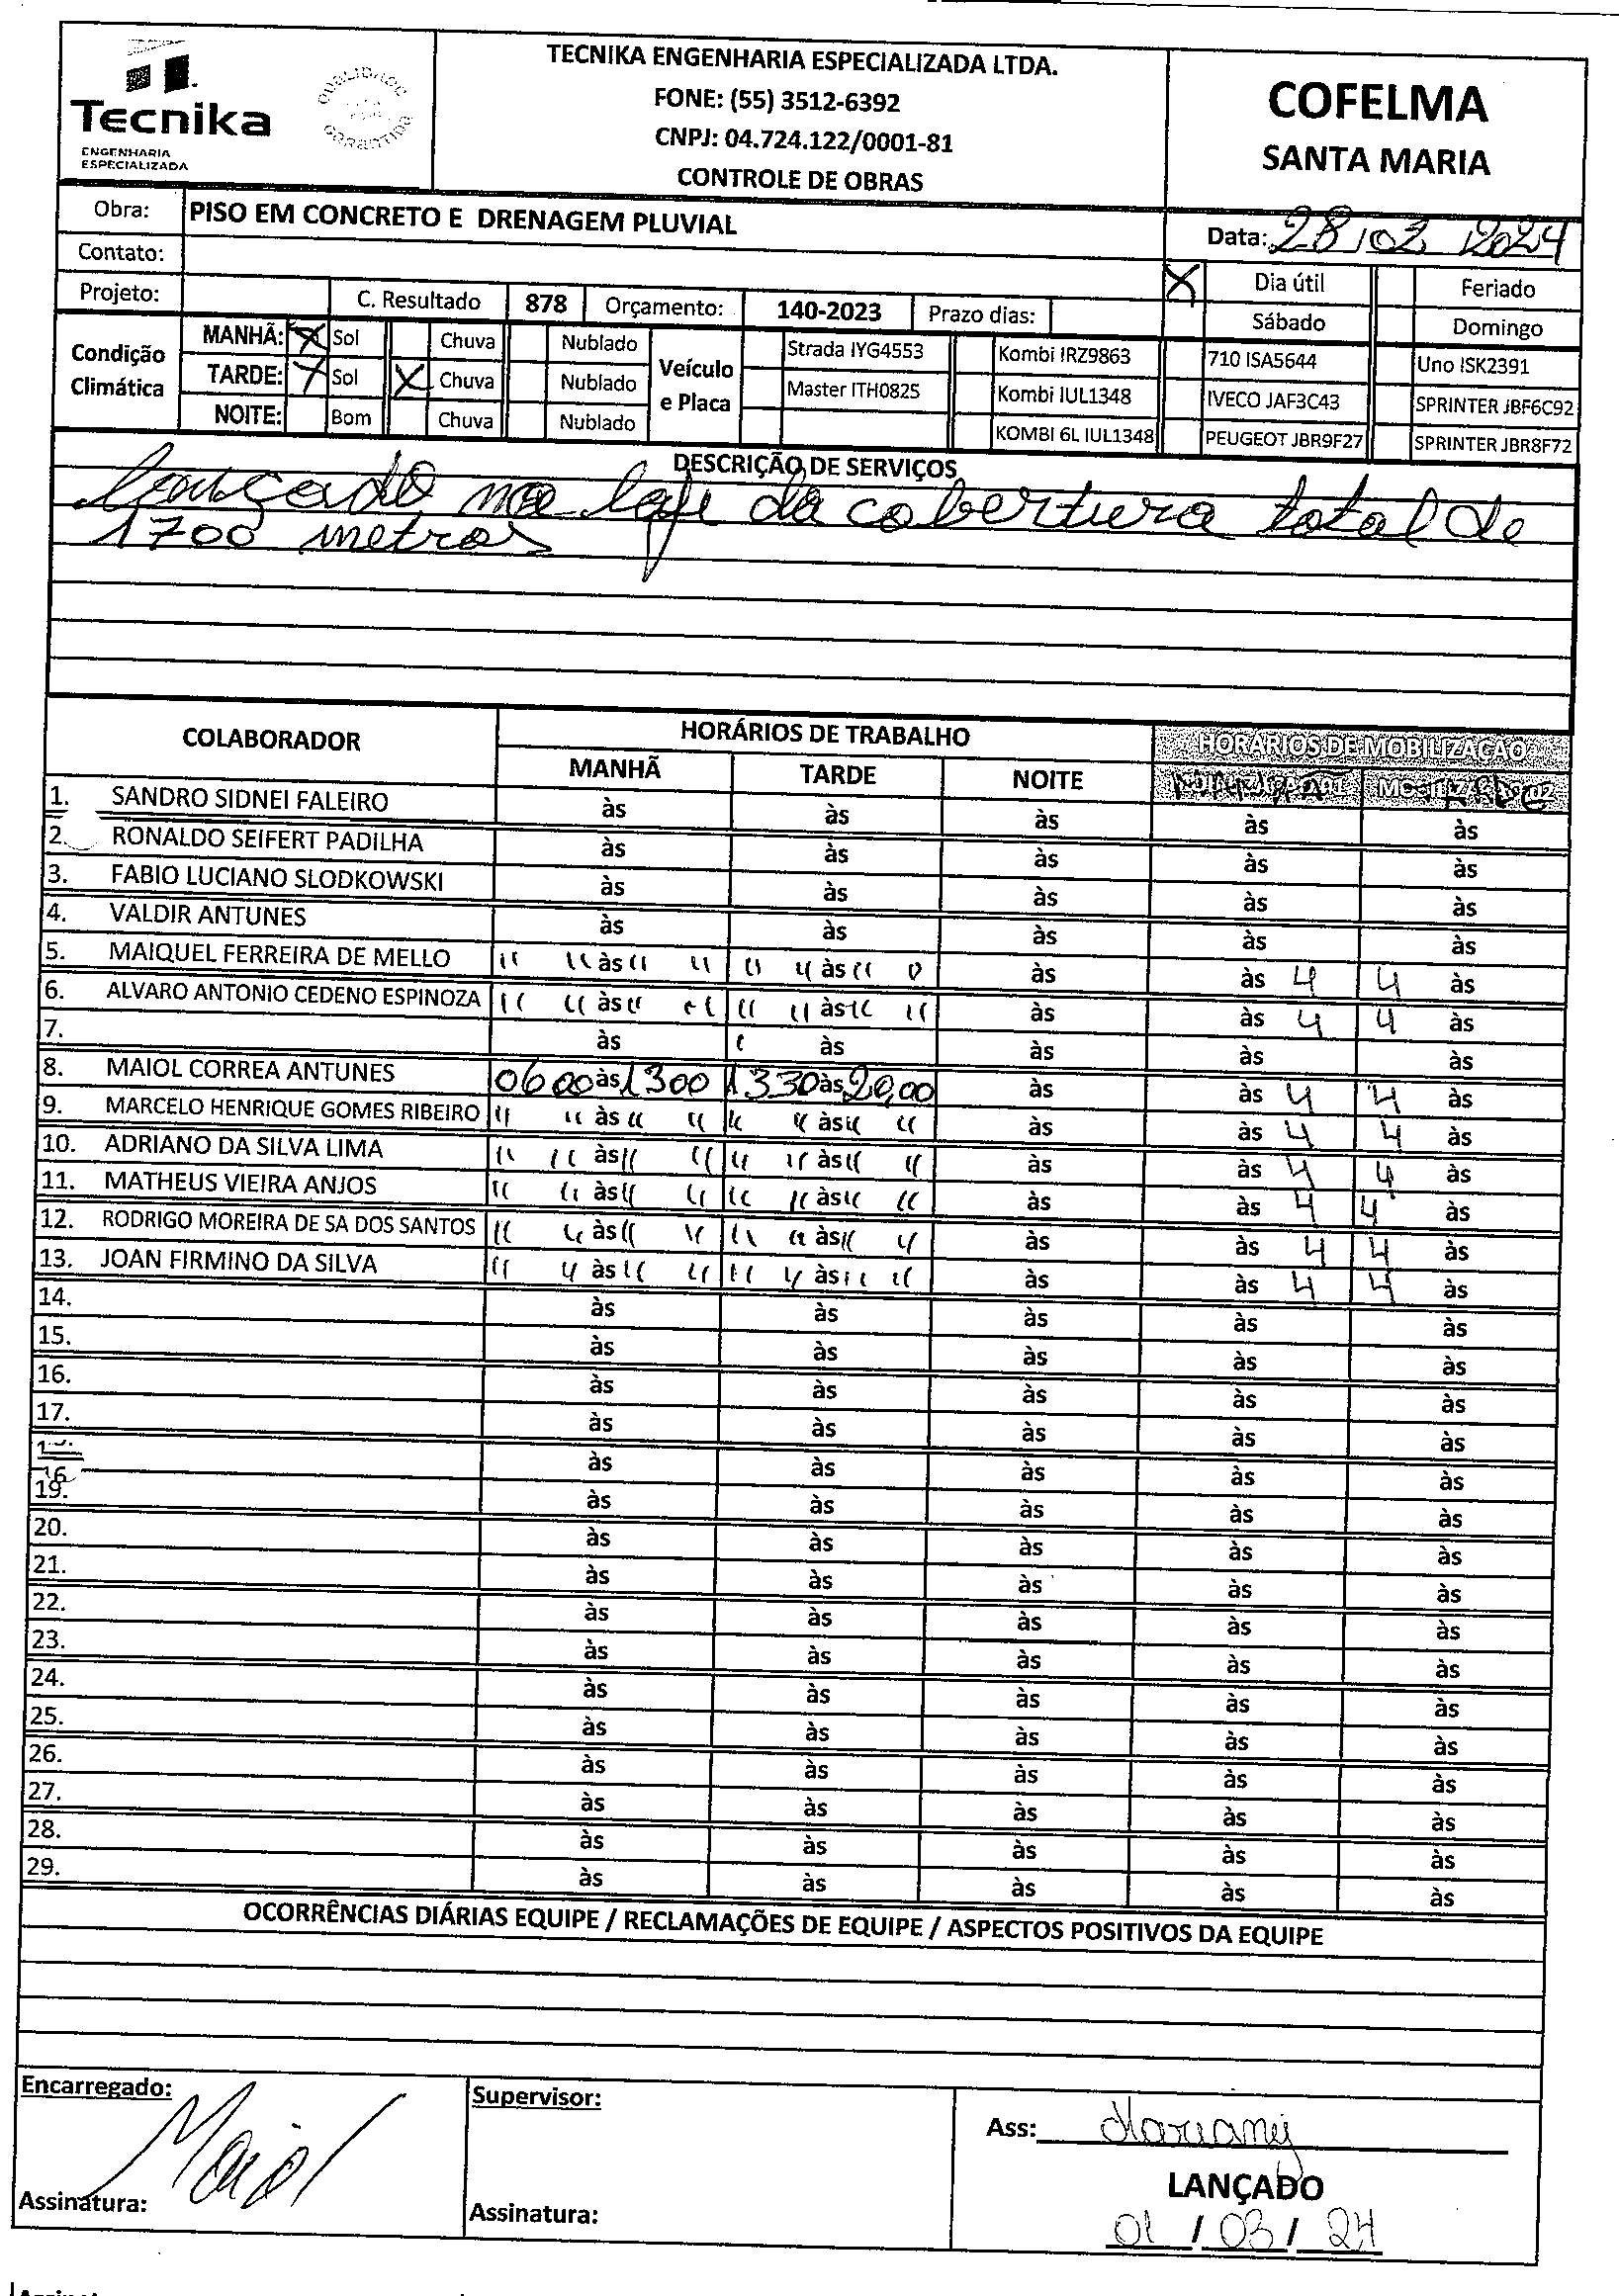 Tecnika
ENGENHARIA
ESPECIALIZADA
QUALIDADE
GARANTIDA
TECNIKA ENGENHARIA ESPECIALIZADA LTDA.
FONE: (55) 3512-6392
CNPJ: 04.724.122/0001-81
CONTROLE DE OBRAS
COFELMA
SANTA MARIA
Obra: PISO EM CONCRETO E DRENAGEM PLUVIAL
Data: 28/02/2024
Contato:
X Dia útil Feriado
Projeto: C. Resultado 878 Orçamento: 140-2023 Prazo dias: Sábado Domingo
Condição Climática
MANHÃ: X Sol Chuva Nublado
TARDE: X Sol X Chuva Nublado
NOITE: Bom Chuva Nublado
Veículo e Placa
Strada IYG4553 Kombi IRZ9863 710 ISA5644 Uno ISK2391
Master ITH0825 Kombi IUL1348 IVECO JAF3C43 SPRINTER JBF6C92
KOMBI 6L IUL1348 PEUGEOT JBR9F27 SPRINTER JBR8F72
DESCRIÇÃO DE SERVIÇOS
lançado na laje da cobertura total de
1700 metros
COLABORADOR HORÁRIOS DE TRABALHO HORÁRIOS DE MOBILIZAÇÃO
MANHÃ TARDE NOITE
1. SANDRO SIDNEI FALEIRO às às às às às
2. RONALDO SEIFERT PADILHA às às às às às
3. FABIO LUCIANO SLODKOWSKI às às às às às
4. VALDIR ANTUNES às às às às às
5. MAIQUEL FERREIRA DE MELLO " " às " " " " às " " às às 4 4 às
6. ALVARO ANTONIO CEDENO ESPINOZA " " às " " " " às " " às às 4 4 às
7. às às às às às
8. MAIOL CORREA ANTUNES 0600 às 1300 1330 às 20,00 às às 4 4 às
9. MARCELO HENRIQUE GOMES RIBEIRO " " às " " " " às " " às às 4 4 às
10. ADRIANO DA SILVA LIMA " " às " " " " às " " às às 4 4 às
11. MATHEUS VIEIRA ANJOS " " às " " " " às " " às às 4 4 às
12. RODRIGO MOREIRA DE SA DOS SANTOS " " às " " " " às " " às às 4 4 às
13. JOAN FIRMINO DA SILVA " " às " " " " às " " às às 4 4 às
14. às às às às às
15. às às às às às
16. às às às às às
17. às às às às às
às às às às às
19. às às às às às
20. às às às às às
21. às às às às às
22. às às às às às
23. às às às às às
24. às às às às às
25. às às às às às
26. às às às às às
27. às às às às às
28. às às às às às
29. às às às às às
OCORRÊNCIAS DIÁRIAS EQUIPE / RECLAMAÇÕES DE EQUIPE / ASPECTOS POSITIVOS DA EQUIPE
Encarregado: Supervisor:
Maiol
Ass: Mariany
Assinatura: Assinatura:
LANÇADO
01 / 03 / 24